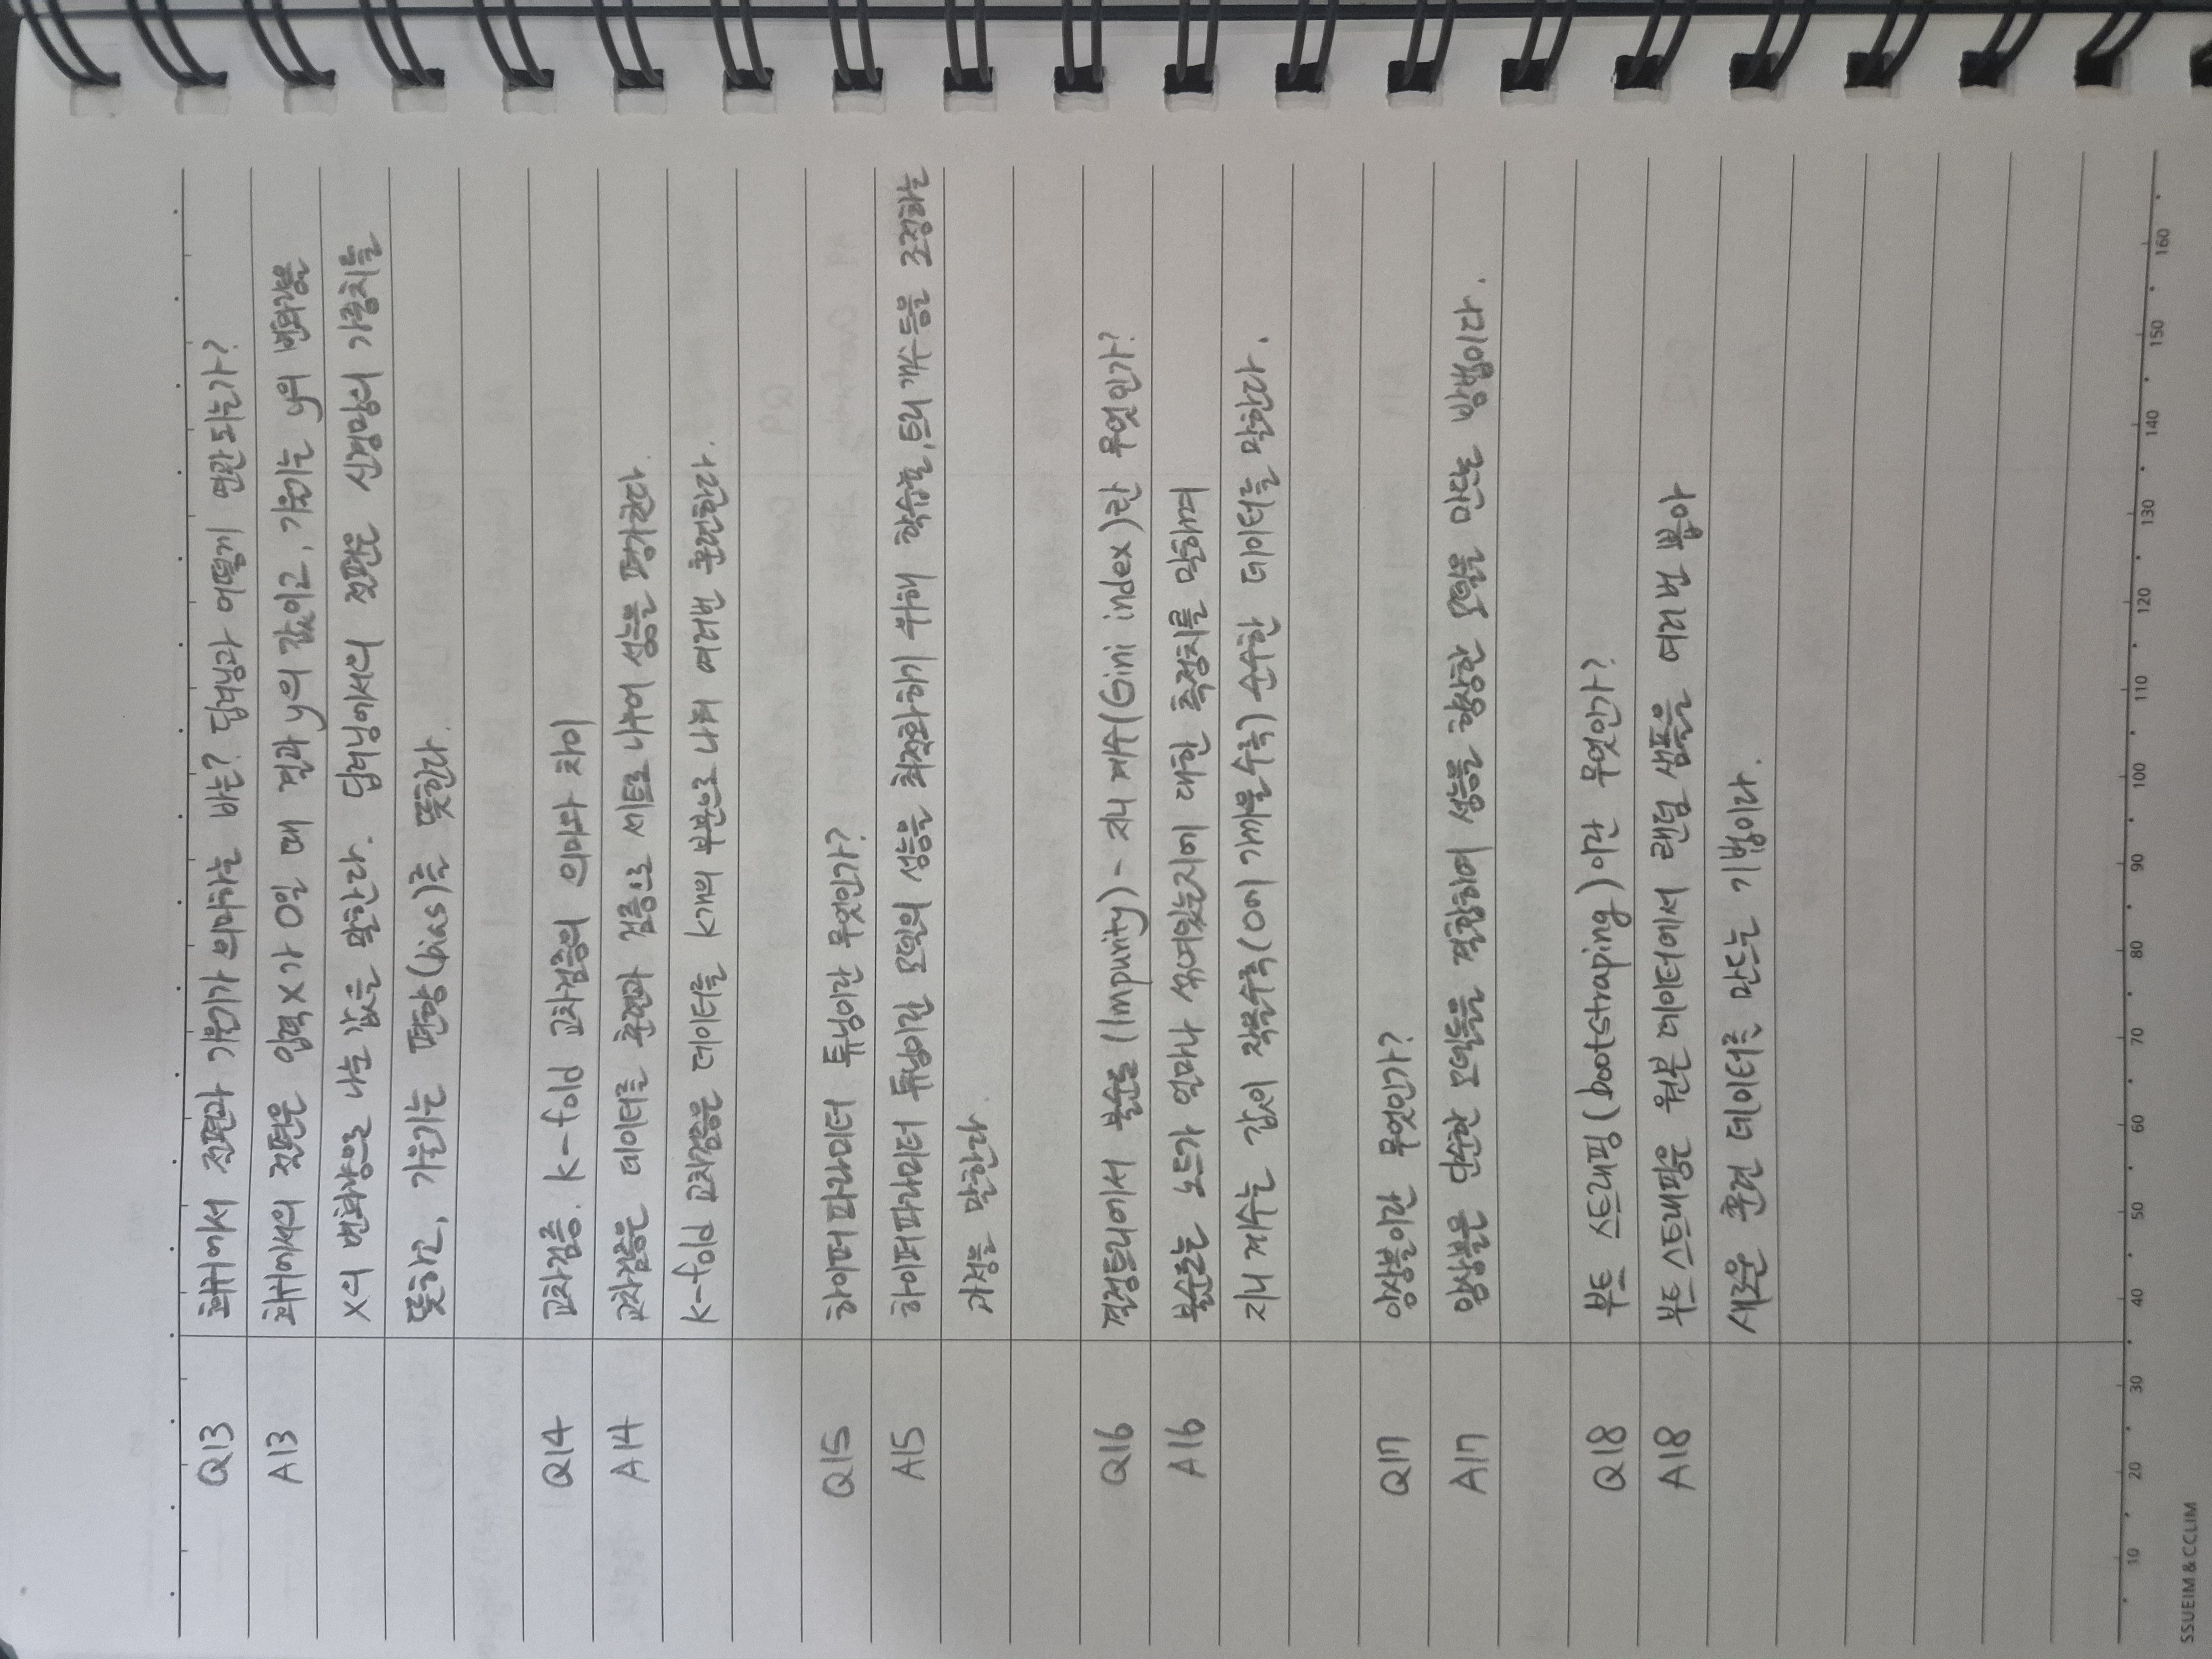 Q13 회귀에서 절편과 기울기가 의미하는 바는? 딥러닝과 어떻게 연관되는가?
A13 회귀에서의 절편은 입력 x가 0일 때 결과 y의 값이고, 기울기는 y의 변화량을
x의 변화량으로 나눈 값을 말한다. 딥러닝에서의 절편은 신경망의 가중치를
뜻하고, 기울기는 편향(bias)를 뜻한다.
Q14 교차검증. K-fold 교차검증의 의미와 차이
A14 교차검증은 데이터를 훈련과 검증으로 세트로 나누어 성능을 평가한다.
K-fold 교차검증은 데이터를 K개의 부분으로 나눠 여러번 훈련한다.
Q15 하이퍼파라미터 튜닝이란 무엇인가?
A15 하이퍼파라미터 튜닝이란 모델의 성능을 최적화하기 위해 학습률, 트리 개수 등을 조정하는
과정을 말한다.
Q16 결정트리에서 불순도(Impurity) - 지니 계수(Gini index)란 무엇인가?
A16 불순도는 노드가 얼마나 섞여있는지에 대한 측정치를 말하며
지니 계수는 값이 작을수록(0에 가까울수록) 순수한 데이터를 말한다.
Q17 앙상블이란 무엇인가?
A17 앙상블은 단순한 모델들을 결합하여 성능을 향상한 모델을 만드는 방법이다.
Q18 부트 스트래핑(bootstraping)이란 무엇인가?
A18 부트 스트래핑은 원본 데이터에서 랜덤 샘플을 여러번 뽑아
새로운 훈련 데이터를 만드는 기법이다.
10 20 30 40 50 60 70 80 90 100 110 120 130 140 150 160
SSUEIM & CCLIM